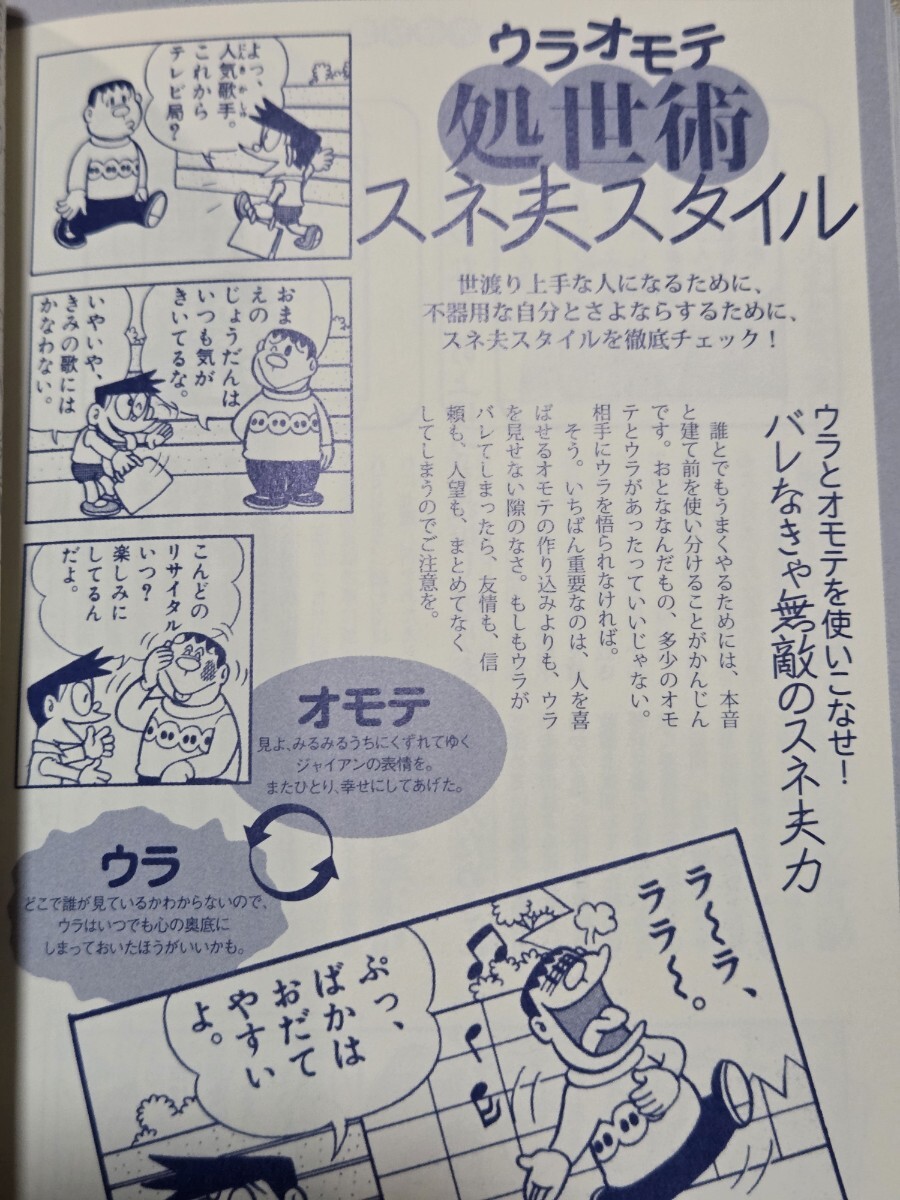 ウラオモテ
処世術
スネ夫スタイル
世渡り上手な人になるために、
不器用な自分とさよならするために、
スネ夫スタイルを徹底チェック！
ウラとオモテを使いこなせ！
バレなきゃ無敵のスネ夫力
誰とでもうまくやるためには、本音
と建て前を使い分けることがかんじん
です。おとななんだもの、多少のオモ
テとウラがあったっていいじゃない。
相手にウラを悟られなければ。
そう。いちばん重要なのは、人を喜
ばせるオモテの作り込みよりも、ウラ
を見せない隙のなさ。もしもウラが
バレてしまったら、友情も、信
頼も、人望も、まとめてなく
してしまうのでご注意を。
よっ、
人気歌手。
にんきかしゅ
これから
テレビ局？
おま
えの
じょうだんは
いつも気が
きいてるな。
いやいや、
きみの歌には
かなわない。
こんどの
リサイタル
いつ？
楽しみに
してるん
だよ。
オモテ
見よ、みるみるうちにくずれてゆく
ジャイアンの表情を。
またひとり、幸せにしてあげた。
ウラ
どこで誰が見ているかわからないので、
ウラはいつでも心の奥底に
しまっておいたほうがいいかも。
ラ〜ラ、
ララ〜。
ぷっ、
ばかは
おだて
やすい
よ。